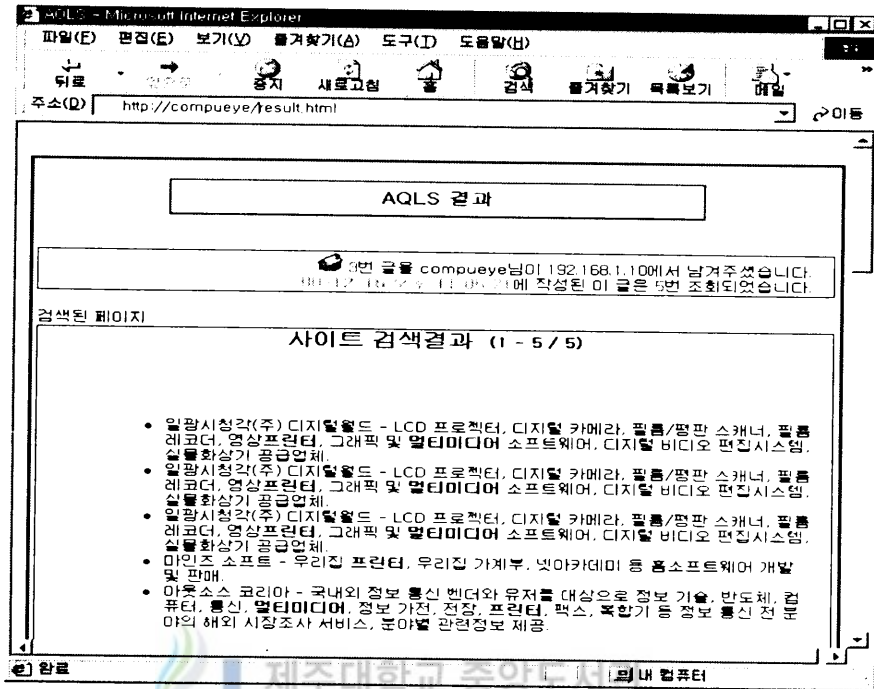 AQLS - Microsoft Internet Explorer
파일(F) 편집(E) 보기(V) 즐겨찾기(A) 도구(T) 도움말(H)
뒤로 중지 새로고침 홈 검색 즐겨찾기 목록보기 메일
주소(D) http://compueye/result.html 이동
AQLS 결과
3번 글을 compueye님이 192.168.1.10에서 남겨주셨습니다.
에 작성된 이 글은 5번 조회되었습니다.
검색된 페이지
사이트 검색결과 (1 - 5 / 5)
• 일광시청각(주) 디지털월드 - LCD 프로젝터, 디지털 카메라, 필름/평판 스캐너, 필름
레코더, 영상프린터, 그래픽 및 멀티미디어 소프트웨어, 디지털 비디오 편집시스템,
실물화상기 공급업체.
• 일광시청각(주) 디지털월드 - LCD 프로젝터, 디지털 카메라, 필름/평판 스캐너, 필름
레코더, 영상프린터, 그래픽 및 멀티미디어 소프트웨어, 디지털 비디오 편집시스템,
실물화상기 공급업체.
• 일광시청각(주) 디지털월드 - LCD 프로젝터, 디지털 카메라, 필름/평판 스캐너, 필름
레코더, 영상프린터, 그래픽 및 멀티미디어 소프트웨어, 디지털 비디오 편집시스템,
실물화상기 공급업체.
• 마인즈 소프트 - 우리집 프린터, 우리집 가계부, 넷아카데미 등 홈소프트웨어 개발
및 판매.
• 아웃소스 코리아 - 국내외 정보 통신 벤더와 유저를 대상으로 정보 기술, 반도체, 컴
퓨터, 통신, 멀티미디어, 정보 가전, 전장, 프린터, 팩스, 복합기 등 정보 통신 전 분
야의 해외 시장조사 서비스, 분야별 관련정보 제공.
완료 내 컴퓨터
제주대학교 중앙도서관